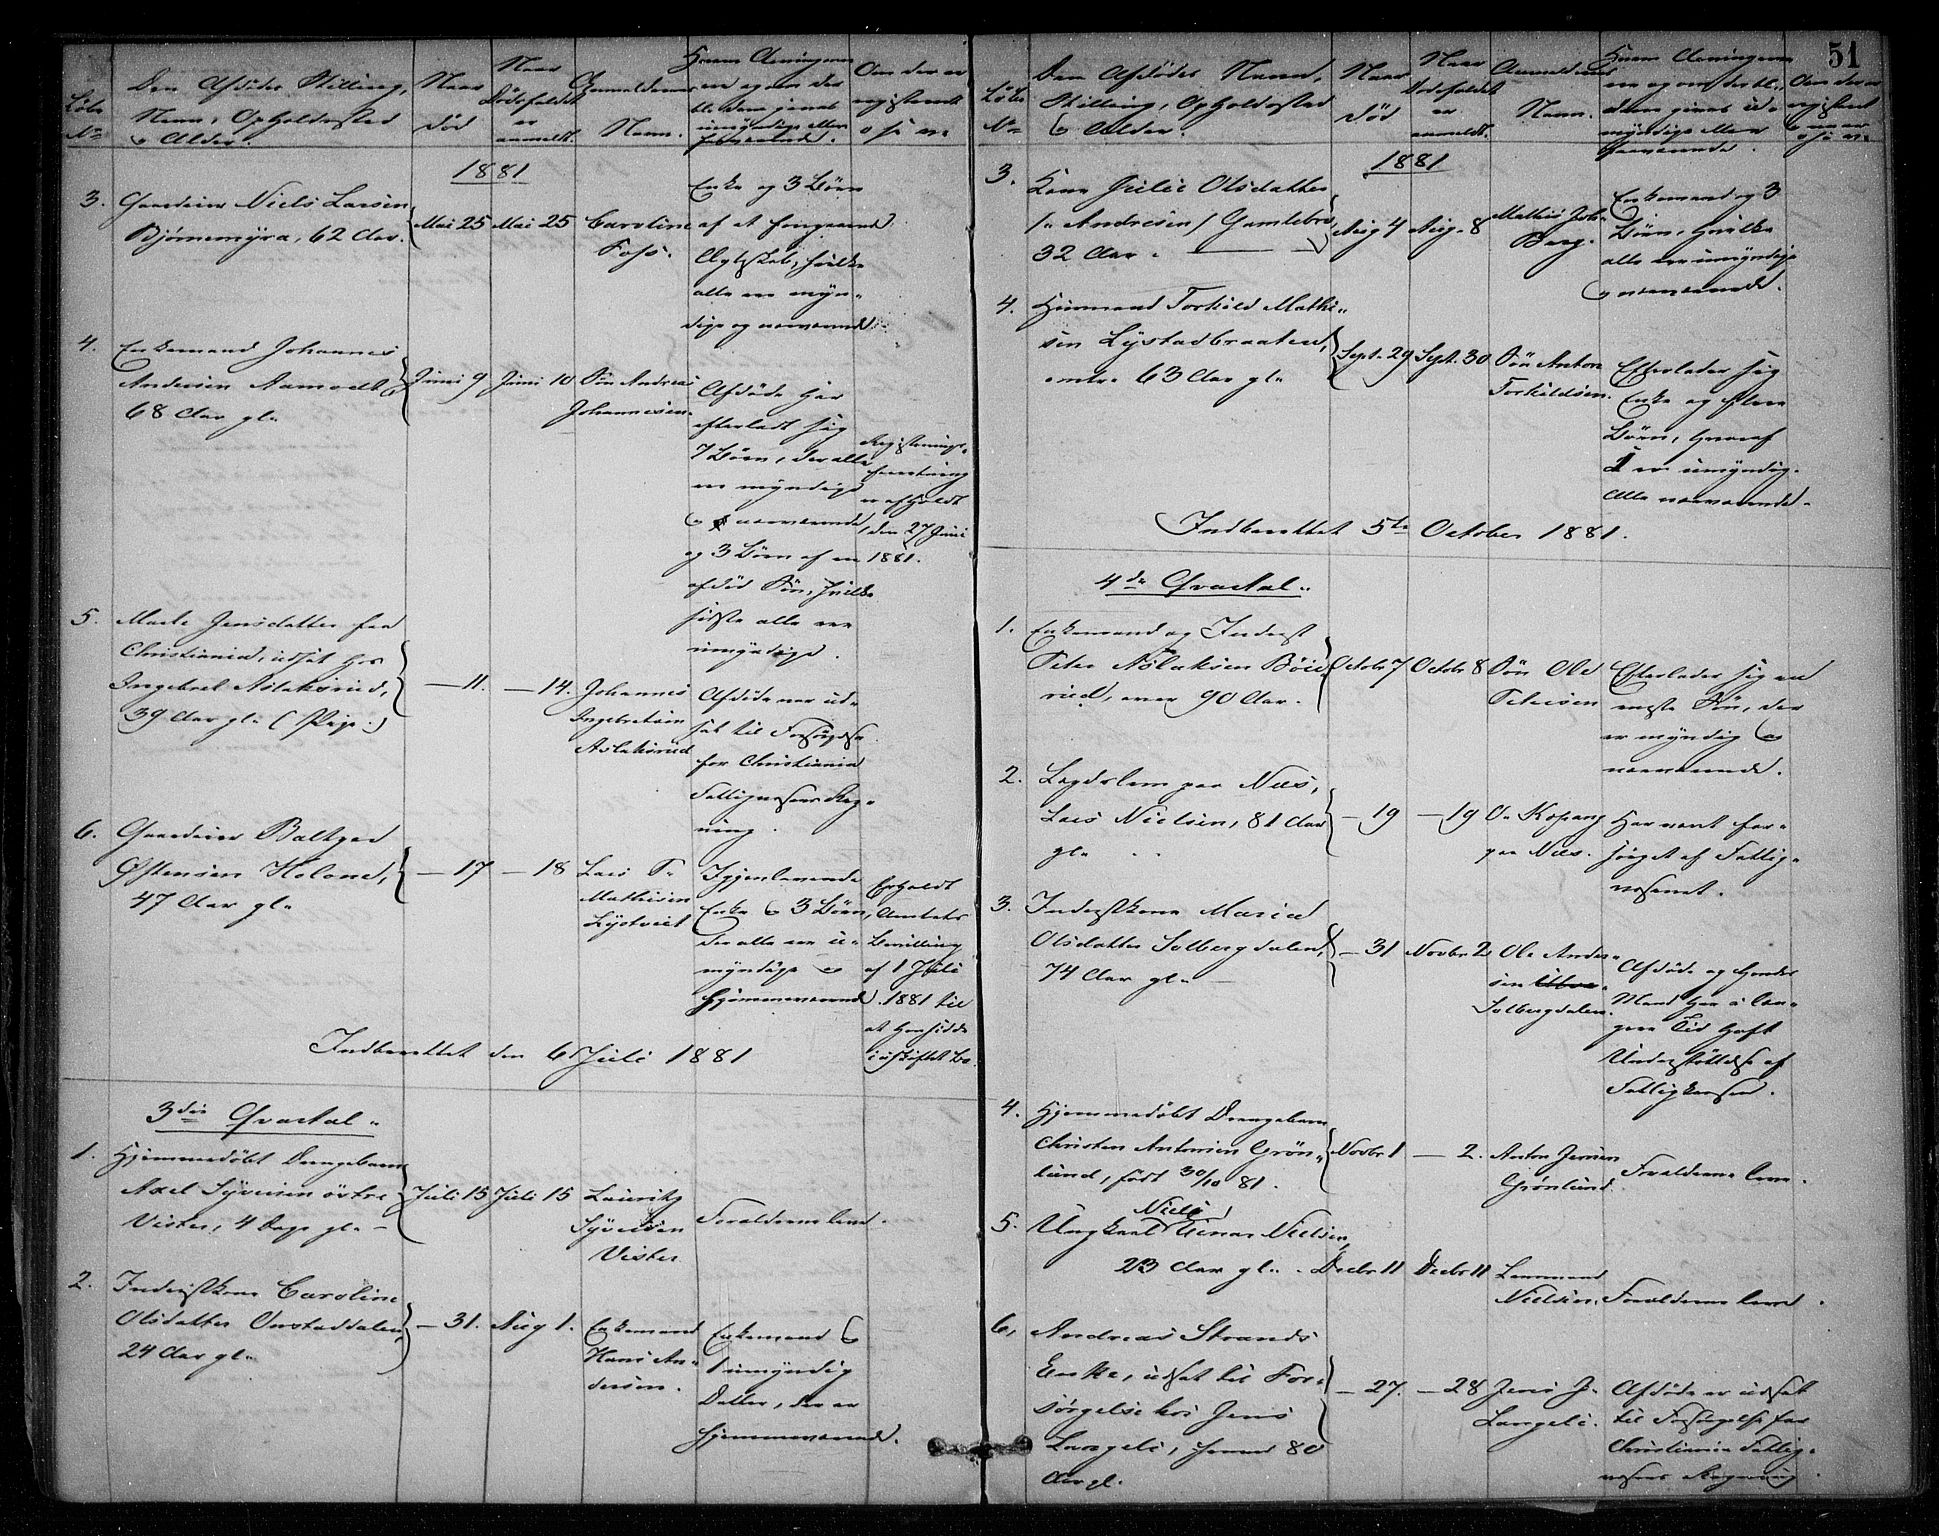 51
Løbe
No
Den Afdødes Stilling,
Navn, Opholdssted
& Alder.
Naar
død
Naar
Dødsfaldet
er
anmeldt.
Anmelderens
Navn.
Hvem Arvingerne
ere og om der
blandt dem gives
umyndige eller
fraværende.
Om der er
registreret
1881
3. Gaardeier Niels Larsen
Bjørnemyra, 62 Aar.
Mai 25
Mai 25
Caroline
Foss.
Enke og 3 Børn
af et foregaaende
Ægteskab, hvilke
alle ere myn-
dige og nærværende.
4. Enkemand Johannes
Andersen Aamodt,
68 Aar gl.
Juni 9
Juni 10
Søn Andreas
Johannesen.
Afdøde har
efterladt sig
7 Børn, der alle
ere myndige
& nærværende,
og 3 Børn af en
afdød Søn, hvilke
sidste alle ere
umyndige.
Registrerings-
forretning
er afholdt
den 27 Juni
1881.
5. Marte Jensdatter fra
Christiania, udsat hos
Ingebret Aslaksrud,
39 Aar gl. (Pige.)
— 11.
— 14.
Johannes
Ingebretsen
Aslaksrud
Afdøde var ud-
sat til Forsørgelse
for Christiania
Fattigvæsens Reg-
ning.
6. Gaardeier Baltzer
Østensen Holone,
47 Aar gl.
— 17
— 18
Lars T.
Mathisen
Lystveit
Igjenlevende
Enke & 3 Børn,
der alle ere u-
myndige &
hjemmeværende.
Erholdt
Amtets
Bevilling
af 1 Juli
1881 til
at hensidde
i uskiftet Bo.
Indberettet den 6 Juli 1881
3die Qvartal.
1. Hjemmedøbt Drengebarn
Axel Syversen øvre
Vister, 4 Dage gl. —
Juli 15
Juli 15
Lauritz
Syversen
Vister
Forældrene leve.
2. Inderstkone Caroline
Olsdatter Onstaddalen,
24 Aar gl.
— 31.
Aug 1.
Enkemand
Hans An-
dersen.
Enkemand &
1 umyndig
Datter, der er
hjemmeværende.
Løbe
No
Den Afdødes Navn,
Stilling, Opholdssted
& Alder.
Naar
død
Naar
Dødsfaldet
er
anmeldt.
Anmelderens
Navn.
Hvem Arvingerne
ere og om der bl.
dem gives u-
myndige eller
fraværende.
Om der er
registreret
1881
3. Kone Julie Olsdatter
/. Andresen / Gamlebro,
32 Aar.
Aug 4
Aug. 8
Mathis Joh.
Berg.
Enkemand og 3
Børn, hvilke
alle ere umyndige
& nærværende.
4. Huusmand Torkild Mathi-
sen Lystadbraaten,
omtr. 63 Aar gl.
Sept. 29
Sept. 30
Søn Anton
Torkildsen.
Efterlader sig
Enke og flere
Børn, hvoraf
1 er umyndig.
Alle nærværende.
Indberettet 5te October 1881.
4de Qvartal.
1. Enkemand og Inderst
Peter Aslaksen Bøie-
rud, over 90 Aar.
Octobr 7
Octobr 8
Søn Ole
Petersen
Efterlader sig en
eneste Søn, der
er myndig &
nærværende.
2. Lægdslem paa Næs,
Lars Nielsen, 81 Aar
gl.
— 19
— 19
O. Kopang
paa Næs.
Har været for-
sørget af Fattig-
væsenet.
3. Inderstkone Maria
Olsdatter Solbergdalen,
74 Aar gl.
— 31
Novbr 2
Ole Ander-
sen
Solbergdalen.
Afdøde og hendes
Mand har i læn-
gere Tid havt
Understøttelse af
Fattigkassen.
4. Hjemmedøbt Drengebarn
Christen Antonsen Grøn-
lund, født 30/10 81.
Novbr 1
— 2.
Anton Jensen
Grønlund.
Forældrene leve.
5. Ungkarl Niels Nielsen,
23 Aar gl.
Decbr 11
Decbr 11
Lensmand
Nielsen.
Forældrene leve.
6. Andreas Strands
Enke, udsat til For-
sørgelse hos Jens
Langeli, henved 80
Aar gl.
— 27.
— 28
Jens J.
Langeli.
Afdøde er udsat
til Forsørgelse for
Christiania Fattig-
væsens Regning.